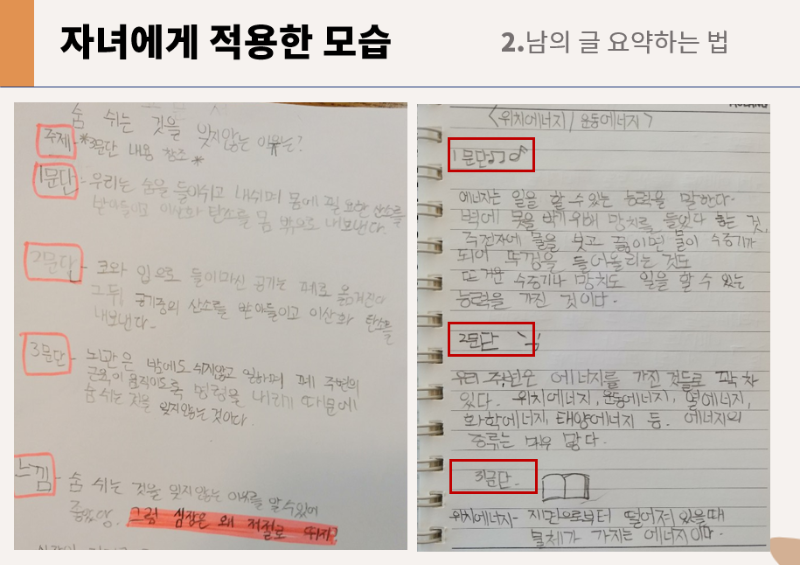 자녀에게 적용한 모습
2.남의 글 요약하는 법
숨 쉬는 것을 잊지않는 이유는?
주제 *3문단 내용 참조*
1문단 - 우리는 숨을 들이쉬고 내쉬며 몸에 필요한 산소를
받아들이고 이산화 탄소를 몸 밖으로 내보낸다.
2문단 - 코와 입으로 들이마신 공기는 폐로 옮겨진다
그 뒤 공기중의 산소를 받아들이고 이산화 탄소를
내보낸다.
3문단 - 뇌간은 밤에도 쉬지않고 일하며 폐 주변의
근육이 움직이도록 명령을 내리기 때문에
숨 쉬는 것을 잊지않는 것이다.
느낌 - 숨 쉬는 것을 잊지않는 이유를 알 수 있어
좋았어. 그럼 심장은 왜 저절로 뛰지?
<위치에너지/운동에너지>
1문단
에너지는 일을 할 수 있는 능력을 말한다.
벽에 못을 박기 위해 망치를 들었다 놓는 것,
주전자에 물을 붓고 끓이면 물이 수증기가
되어 뚜껑을 들어올리는 것도
뜨거운 수증기나 망치도 일을 할 수 있는
능력을 가진 것이다.
2문단
우리 주변은 에너지를 가진 것들로 꽉 차
있다. 위치에너지, 운동에너지, 열에너지,
화학에너지, 태양에너지 등. 에너지의
종류는 매우 많다.
3문단.
위치에너지- 지면으로부터 떨어져 있을때
물체가 가지는 에너지이다.